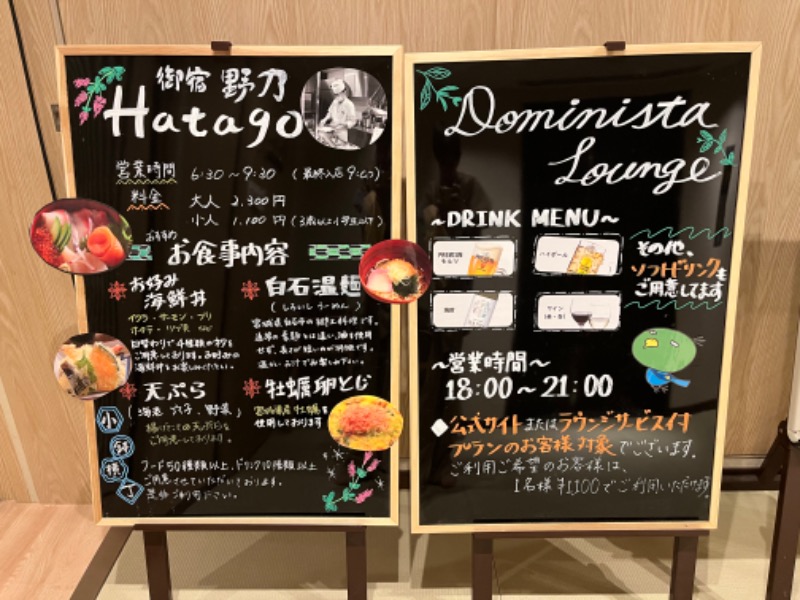 御宿 野乃
Hatago
営業時間 6:30～9:30 (最終入店 9:00)
料金 大人 2,300円
小人 1,100円 (3歳以上小学生以下)
おすすめ
お食事内容
お好み
海鮮丼
イクラ・サーモン・ブリ
日替わりで4種類のネタを
ご用意しております。お好みの
海鮮丼をお楽しみください。
白石温麺
(しろいし うーめん)
宮城県白石市の郷土料理です。
せず、長さが短いのが特徴です。
温かいおけでお楽しみ下さい。
天ぷら
(海老 穴子、野菜)
揚げたての天ぷらを
ご用意しております。
牡蠣卵とじ
宮城県産牡蠣を
使用しております
小鉢横丁
フード50種類以上、ドリンク10種類以上
ご用意させていただいております。
是非ご利用下さい。
Dominista
Lounge
~DRINK MENU~
PREMIUM
モルツ
ハイボール
ワイン
(赤・白)
その他、
ソフトドリンクも
ご用意してます
~営業時間~
18:00~21:00
◆公式サイトまたはラウンジサービス付
プランのお客様対象でございます。
ご利用ご希望のお客様は、
1名様 ¥1,100でご利用いただけます。